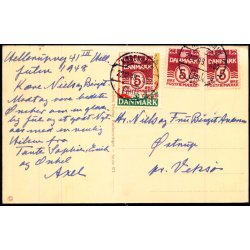 Hellerupvej 41 III Hell.
julen 1948
Kære Niels og Birgit
Modtag vore bedste
Ønsker om en glæde-
lig Jul og et godt Nyt-
aar med en venlig
Hilsen fra
Tante Sophie, Erik
og Onkel
Axel
DANMARK
5
DANMARK
5
DANMARK
5
DANMARK
Hr. Niels og Fru Birgit
Østrup
pr. Veksø